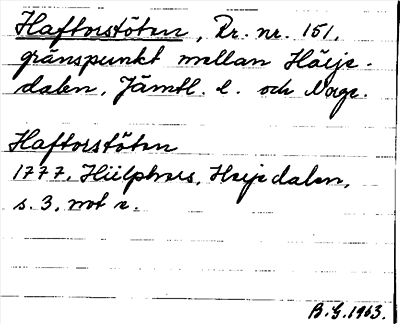 Haftorstöten, Rr. nr. 151,
gränspunkt mellan Härje-
dalen, Jämtl. l. och Norge.
Haftorstöten
1777, Hülphers, Herjedalen,
s. 3, not
B.G. 1963.